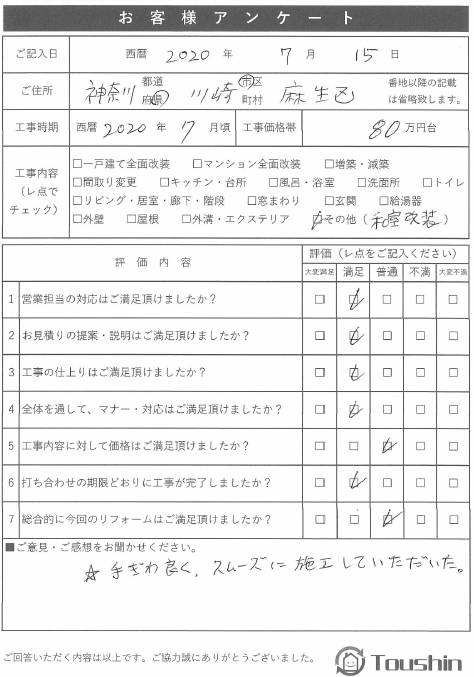 お客様アンケート
ご記入日 西暦 2020 年 7 月 15 日
ご住所 神奈川 都道府県 川崎 市区町村 麻生区 番地以降の記載は省略致します。
工事時期 西暦 2020 年 7 月頃 工事価格帯 80 万円台
工事内容（レ点でチェック）
□一戸建て全面改装 □マンション全面改装 □増築・減築
□間取り変更 □キッチン・台所 □風呂・浴室 □洗面所 □トイレ
□リビング・居室・廊下・階段 □窓まわり □玄関 □給湯器
□外壁 □屋根 □外溝・エクステリア ☑その他（和室改装）
評価内容 評価（レ点をご記入ください）
大変満足 満足 普通 不満 大変不満
1 営業担当の対応はご満足頂けましたか？ □ ☑ □ □ □
2 お見積りの提案・説明はご満足頂けましたか？ □ ☑ □ □ □
3 工事の仕上りはご満足頂けましたか？ □ ☑ □ □ □
4 全体を通して、マナー・対応はご満足頂けましたか？ □ ☑ □ □ □
5 工事内容に対して価格はご満足頂けましたか？ □ □ ☑ □ □
6 打ち合わせの期限どおりに工事が完了しましたか？ □ ☑ □ □ □
7 総合的に今回のリフォームはご満足頂けましたか？ □ □ ☑ □ □
■ご意見・ご感想をお聞かせください。
☆ 手ぎわ良く、スムーズに施工していただいた。
ご回答いただく内容は以上です。ご協力誠にありがとうございました。
Toushin